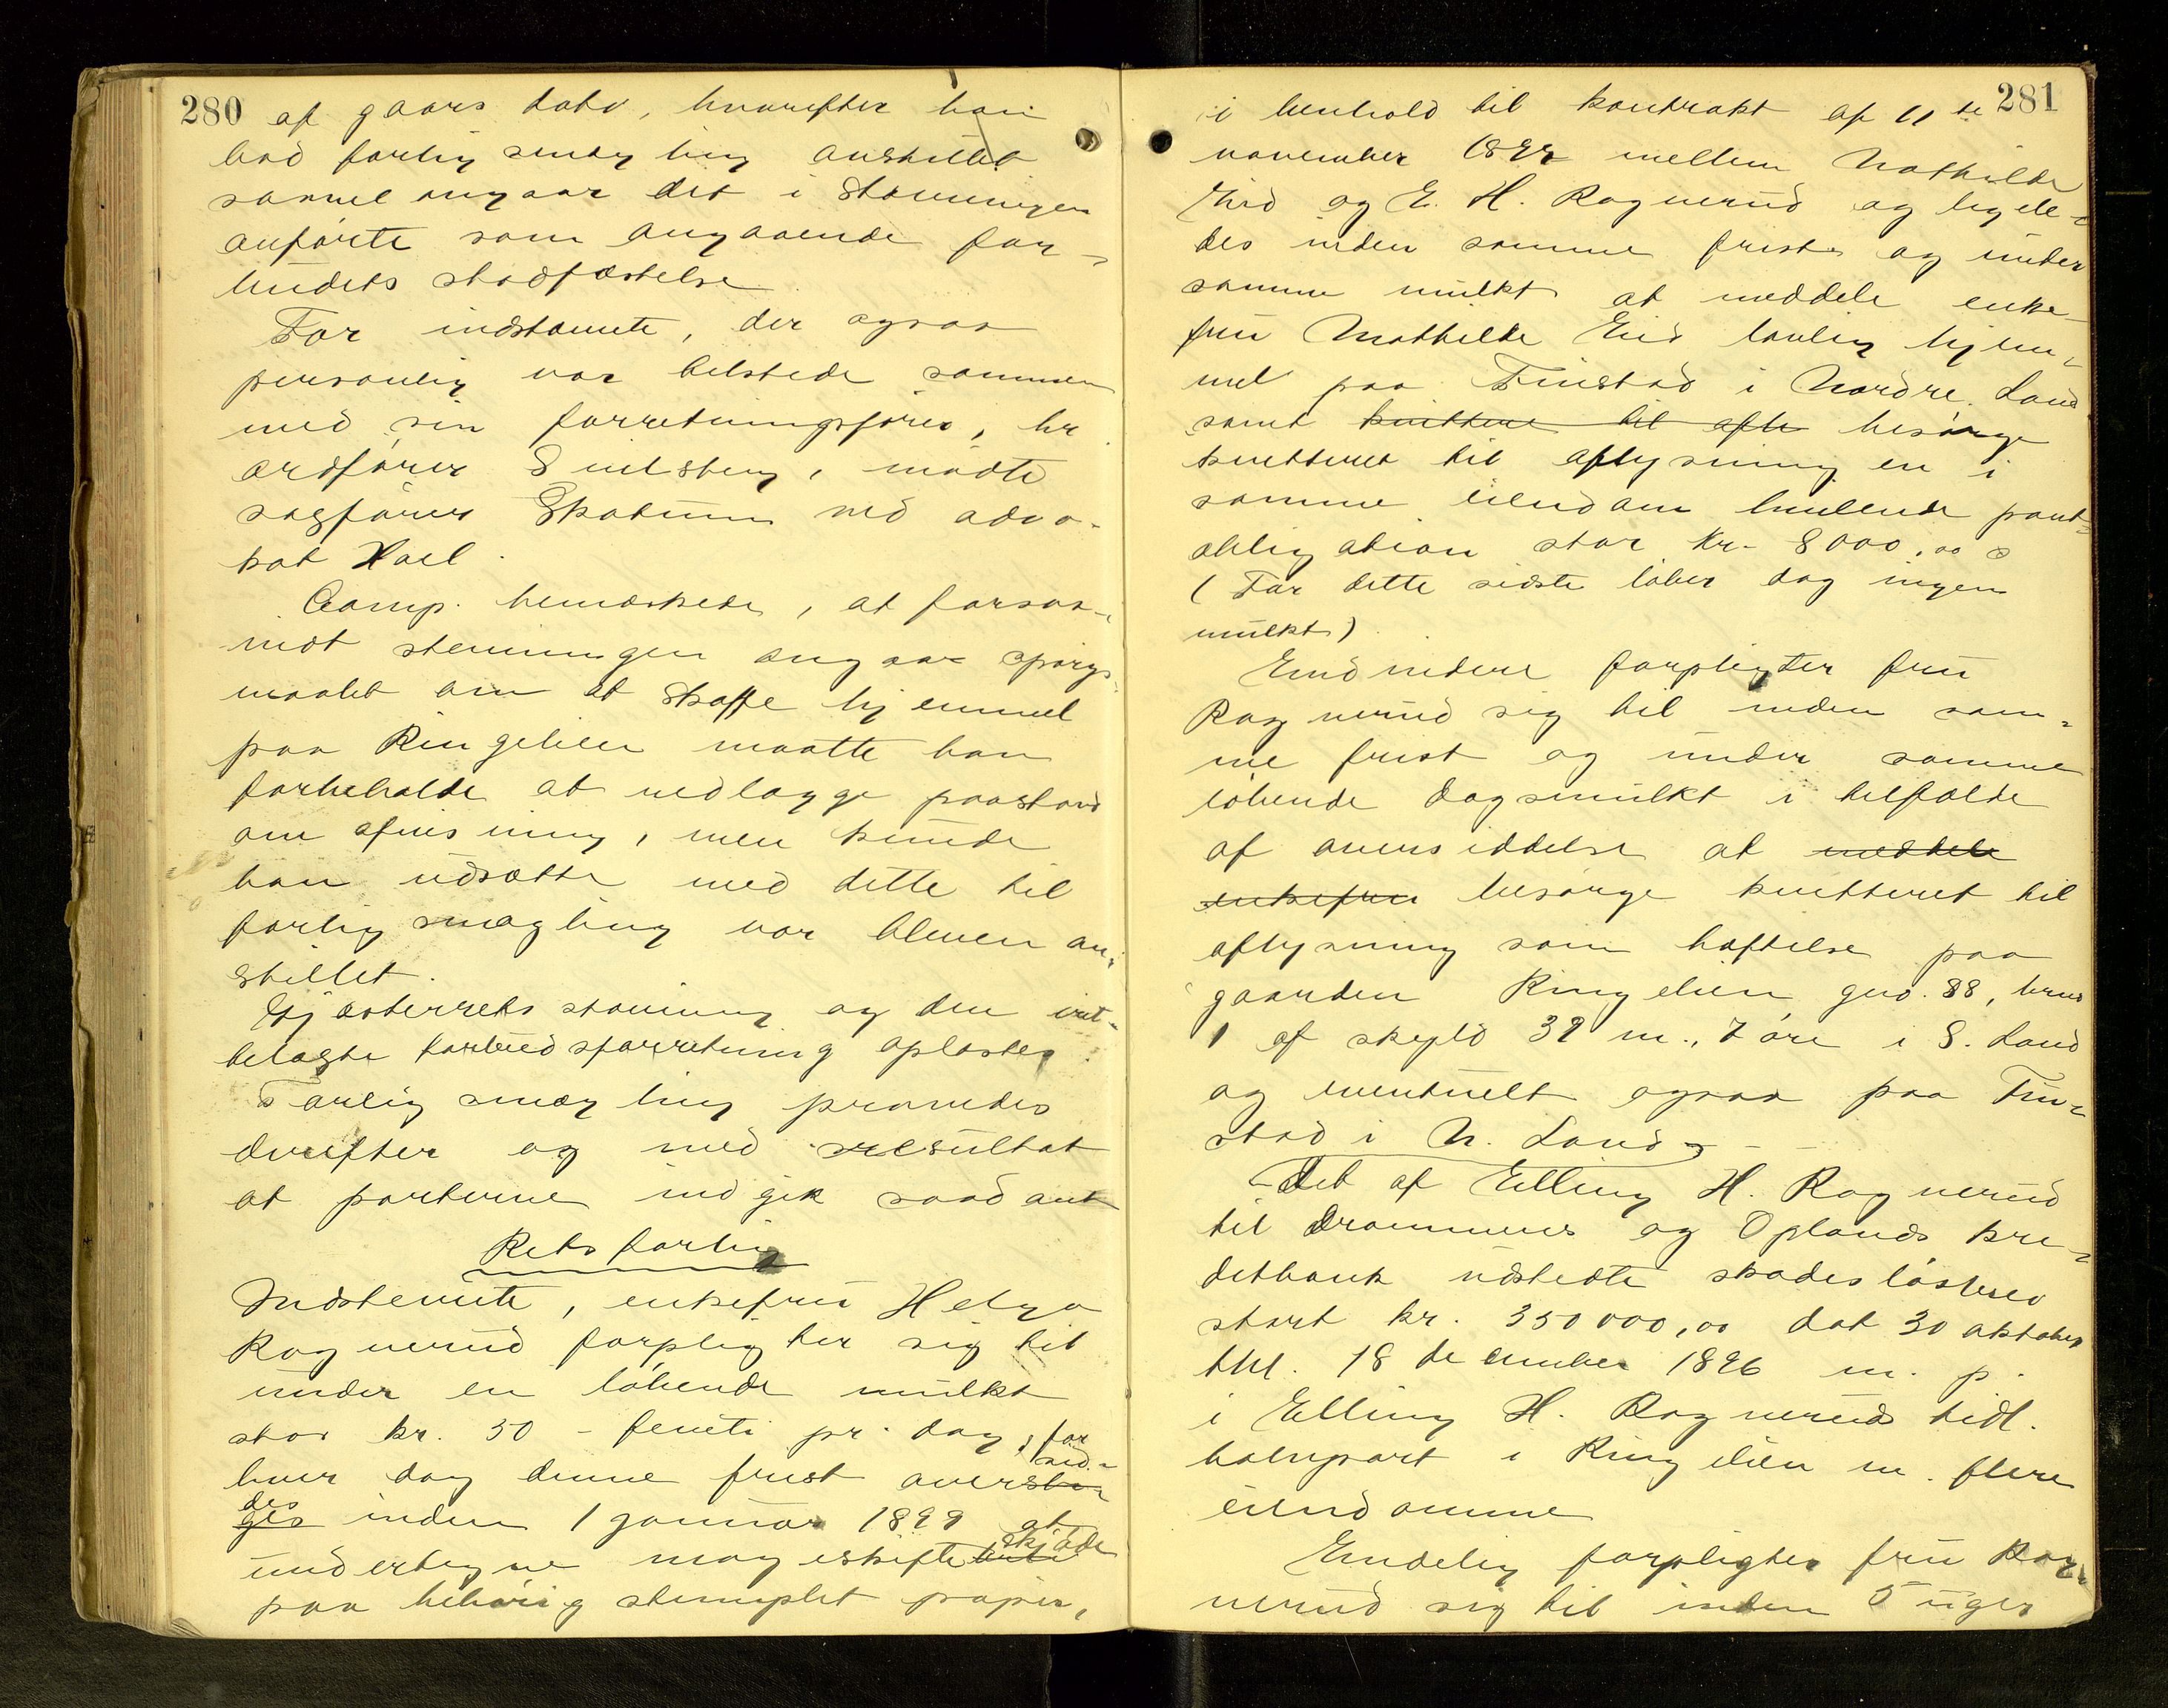 280
af gaars dato, hvorefter han
bad forligsmægling anstillet
saavel angaar det i stævningen
anførte som angaaende for-
budets stadfæstelse
For indstævnte, der ogsaa
personlig var tilstede sammen
med sin forretningsfører, hr
ordfører mødte
sagfører Skatum ved advo-
kat Hoel.
Comp. bemærkede, at forsaa-
vidt stevningen angaar spørgs-
maalet om at skaffe hjemmel
paa Ringelien maatte han
forbeholde at nedlægge paastand
om afvisning, men kunde
han udsætte med dette til
forligsmægling var bleven an-
stillet.
Gjæsterrets stævning og den iret-
telagte forbudsforretning oplæstes.
Forligsmægling prøvedes
derefter og med resultat
at parterne indgik saadant
Retsforlig
Indstevnte, enkefru Helga
Rognerud forpligter sig til
under en løbende mulkt
stor kr. 50 - femti pr. dag, for
hver dag denne frist oversid-
des inden 1 januar 1899 at
undertegne mageskifteskjøde
paa behørig stemplet papir,
281
i henhold til kontrakt af 11te
november 189 mellem Mathilde
Eid og E. H. Rognerud og ligele-
des inden samme frist og under
samme mulkt at meddele enke
fru Mathilde Eid lovlig hjem-
mel paa Finstad i Nordre Land
samt kvittere til afly besørge
kvitteret til aflysning en i
samme eiendom heftende pant-
obligation stor kr. 8000,00
(For dette sidste løber dog ingen
mulkt)
Endvidere forpligter fru
Rognerud sig til inden sam-
me frist og under samme
løbende dagsmulkt i tilfælde
af oversiddelse at meddele
enkefru besørge kvitteret til
aflysning som heftelse paa
gaarden Ringelien gno. 88, brno
1 af skyld 39 m., 7 øre i S. Land
og eventuelt ogsaa paa Fin-
stad i N. Land
Det af Elling H. Rognerud
til Drammens og Oplands kre-
ditbank udstedte skadesløsbrev
stort kr. 350000,00 dat 30 oktober
thl. 18 december 1896 m. p.
i Elling H. Rogneruds tidl.
halvpart i Ringelien m. flere
eiendomme
Endelig forpligter fru Rog-
nerud sig til inden 5 uger